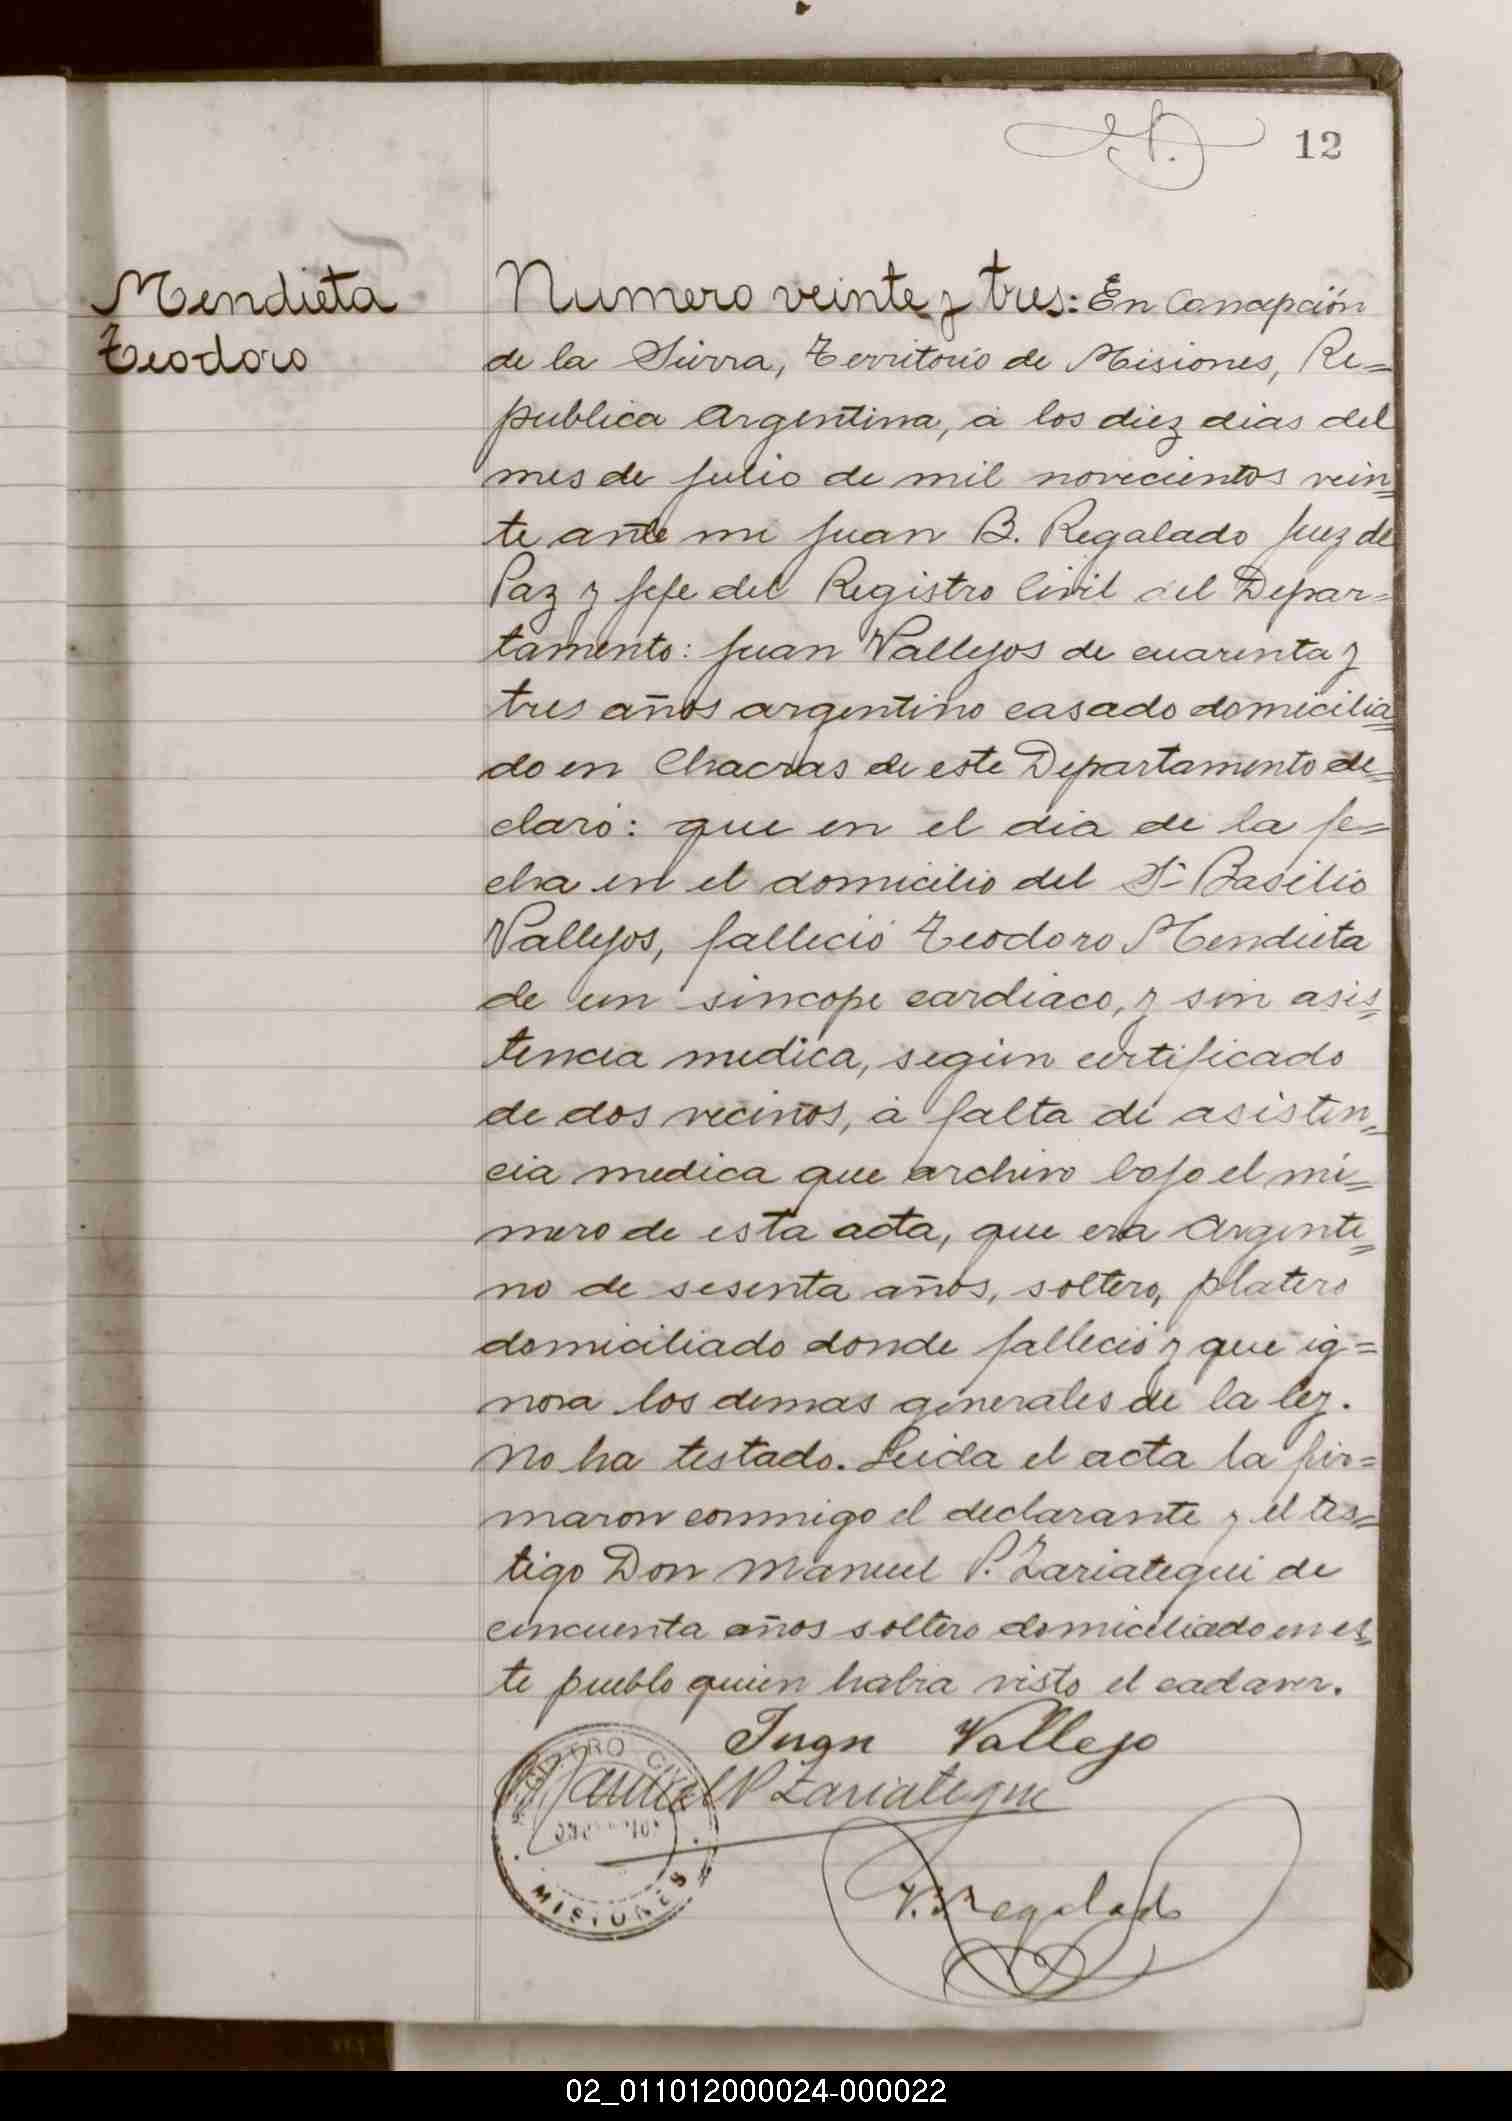 12
Mendieta
Teodoro
Numero veinte y tres: En Concepción
de la Sierra, Territorio de Misiones, Re=
publica Argentina, á los diez dias del
mes de Julio de mil novecientos vein=
te ante mi Juan B. Regalado Juez de
Paz y Jefe del Registro Civil del Depar=
tamento: Juan Vallejos de cuarenta y
tres años argentino casado domicilia=
do en Chacras de este Departamento de=
claró: que en el dia de la fe=
cha en el domicilio del Sr Basilio
Vallejos, falleció Teodoro Mendieta
de un sincope cardiaco, y sin asis=
tencia medica, según certificado
de dos vecinos, á falta de asisten=
cia medica que archivo bajo el nú=
mero de esta acta, que era Argenti=
no de sesenta años, soltero, platero
domiciliado donde falleció y que ig=
nora los demas generales de la ley.
No ha testado. Leida el acta la fir=
maron conmigo el declarante y el tes=
tigo Don Manuel P. Zariategui de
cincuenta años soltero domiciliado en es=
te pueblo quien habia visto el cadaver.
Juan Vallejo
Manuel P Zariategui
REGISTRO CIVIL
MISIONES
J. B. Regalado
02_011012000024-000022